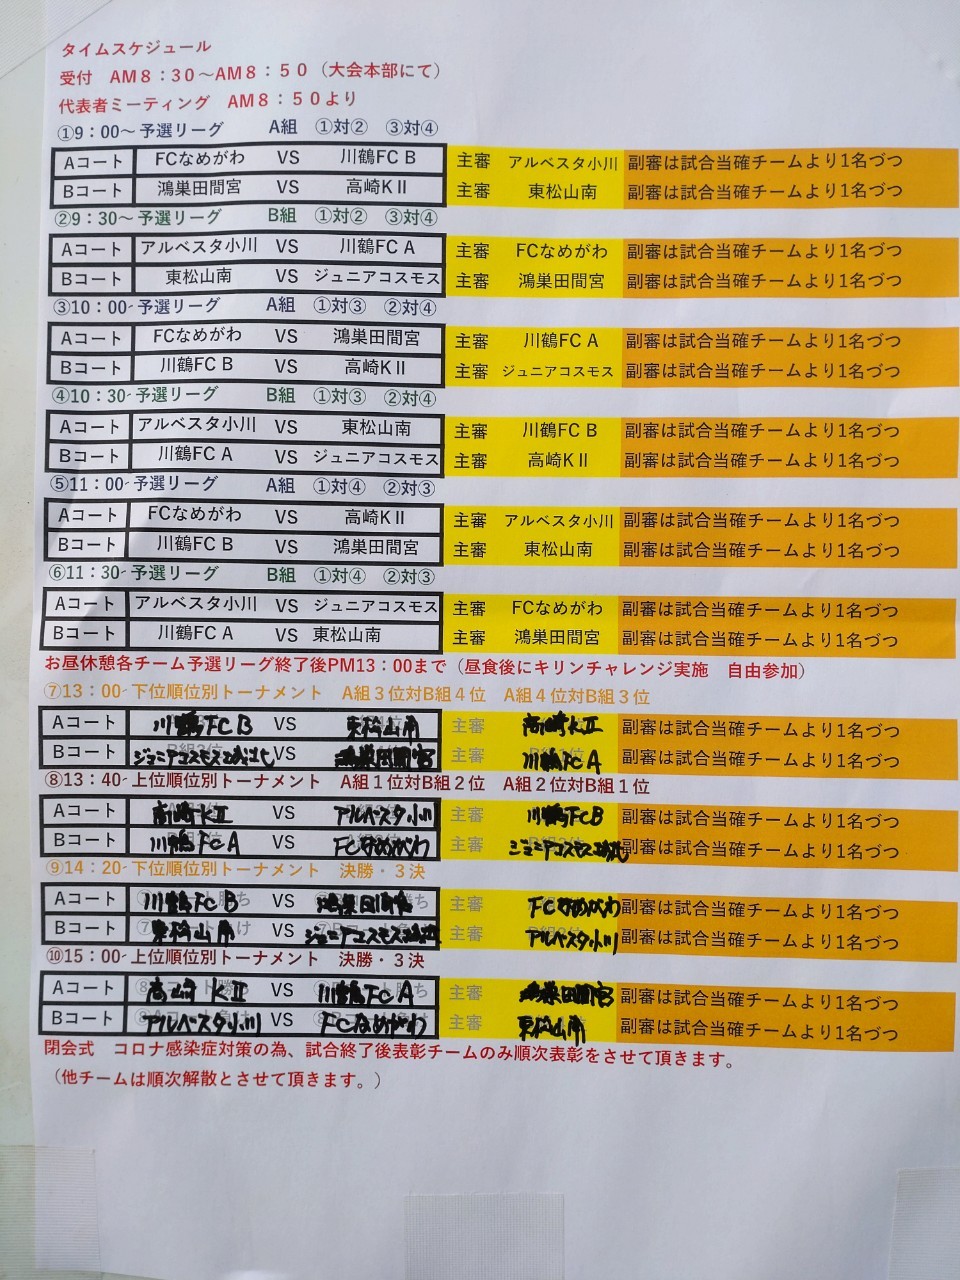 タイムスケジュール
受付 AM8:30～AM8:50（大会本部にて）
代表者ミーティング AM8:50より
①9:00～予選リーグ A組 ①対② ③対④
Aコート FCなめがわ VS 川鶴FC B 主審 アルベスタ小川 副審は試合当確チームより1名づつ
Bコート 鴻巣田間宮 VS 高崎KⅡ 主審 東松山南 副審は試合当確チームより1名づつ
②9:30～予選リーグ B組 ①対② ③対④
Aコート アルベスタ小川 VS 川鶴FC A 主審 FCなめがわ 副審は試合当確チームより1名づつ
Bコート 東松山南 VS ジュニアコスモス 主審 鴻巣田間宮 副審は試合当確チームより1名づつ
③10:00-予選リーグ A組 ①対③ ②対④
Aコート FCなめがわ VS 鴻巣田間宮 主審 川鶴FC A 副審は試合当確チームより1名づつ
Bコート 川鶴FC B VS 高崎KⅡ 主審 ジュニアコスモス 副審は試合当確チームより1名づつ
④10:30-予選リーグ B組 ①対③ ②対④
Aコート アルベスタ小川 VS 東松山南 主審 川鶴FC B 副審は試合当確チームより1名づつ
Bコート 川鶴FC A VS ジュニアコスモス 主審 高崎KⅡ 副審は試合当確チームより1名づつ
⑤11:00-予選リーグ A組 ①対④ ②対③
Aコート FCなめがわ VS 高崎KⅡ 主審 アルベスタ小川 副審は試合当確チームより1名づつ
Bコート 川鶴FC B VS 鴻巣田間宮 主審 東松山南 副審は試合当確チームより1名づつ
⑥11:30-予選リーグ B組 ①対④ ②対③
Aコート アルベスタ小川 VS ジュニアコスモス 主審 FCなめがわ 副審は試合当確チームより1名づつ
Bコート 川鶴FC A VS 東松山南 主審 鴻巣田間宮 副審は試合当確チームより1名づつ
お昼休憩各チーム予選リーグ終了後PM13:00まで（昼食後にキリンチャレンジ実施 自由参加）
⑦13:00-下位順位別トーナメント A組3位対B組4位 A組4位対B組3位
Aコート 川鶴FC B VS 東松山南 主審 高崎KⅡ 副審は試合当確チームより1名づつ
Bコート ジュニアコスモス VS 鴻巣田間宮 主審 川鶴FC A 副審は試合当確チームより1名づつ
⑧13:40-上位順位別トーナメント A組1位対B組2位 A組2位対B組1位
Aコート 高崎KⅡ VS アルベスタ小川 主審 川鶴FC B 副審は試合当確チームより1名づつ
Bコート 川鶴FC A VS FCなめがわ 主審 ジュニアコスモス 副審は試合当確チームより1名づつ
⑨14:20-下位順位別トーナメント 決勝・3決
Aコート 川鶴FC B VS 鴻巣田間宮 主審 FCなめがわ 副審は試合当確チームより1名づつ
Bコート 東松山南 VS ジュニアコスモス 主審 アルベスタ小川 副審は試合当確チームより1名づつ
⑩15:00-上位順位別トーナメント 決勝・3決
Aコート 高崎KⅡ VS 川鶴FC A 主審 鴻巣田間宮 副審は試合当確チームより1名づつ
Bコート アルベスタ小川 VS FCなめがわ 主審 東松山南 副審は試合当確チームより1名づつ
閉会式 コロナ感染症対策の為、試合終了後表彰チームのみ順次表彰をさせて頂きます。
（他チームは順次解散とさせて頂きます。）